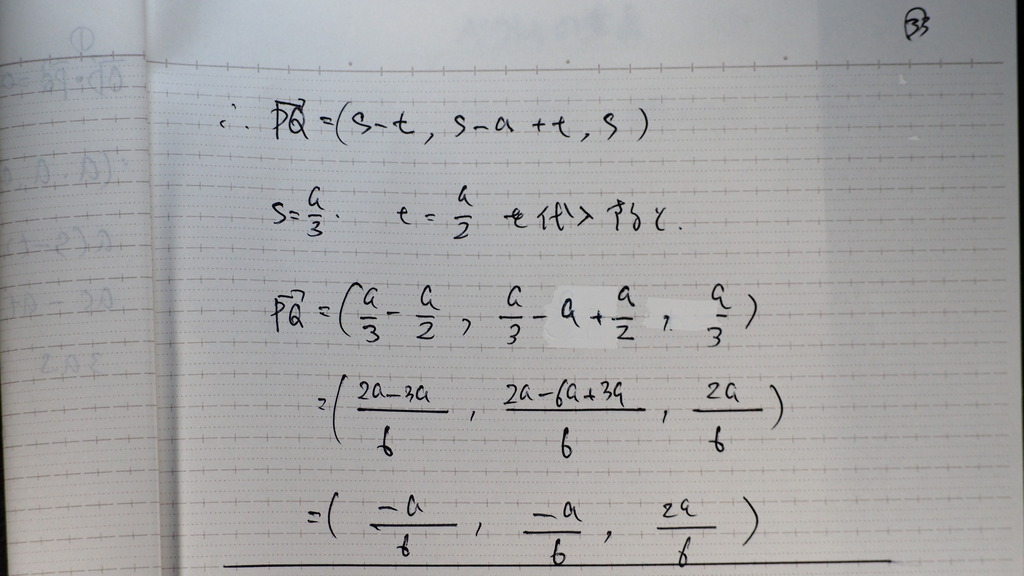 ㉟
∴ PQ→ = (s-t, s-a+t, s)
s = a/3. t = a/2 を代入すると.
PQ→ = (a/3 - a/2, a/3 - a + a/2, a/3)
= ((2a-3a)/6, (2a-6a+3a)/6, 2a/6)
= (-a/6, -a/6, 2a/6)